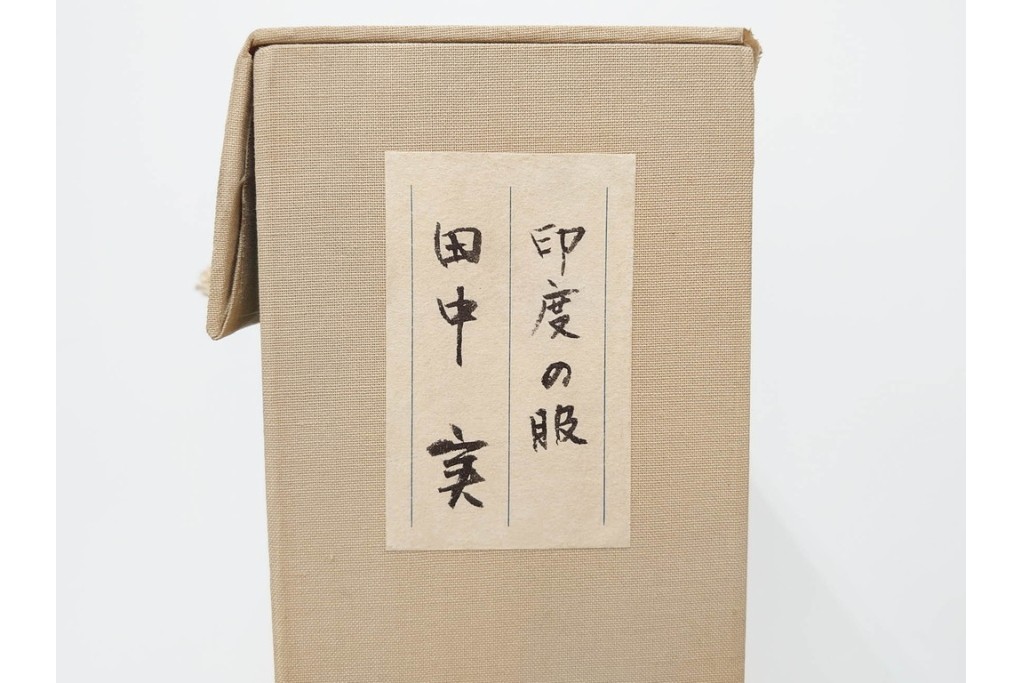 印度の服
田中 実